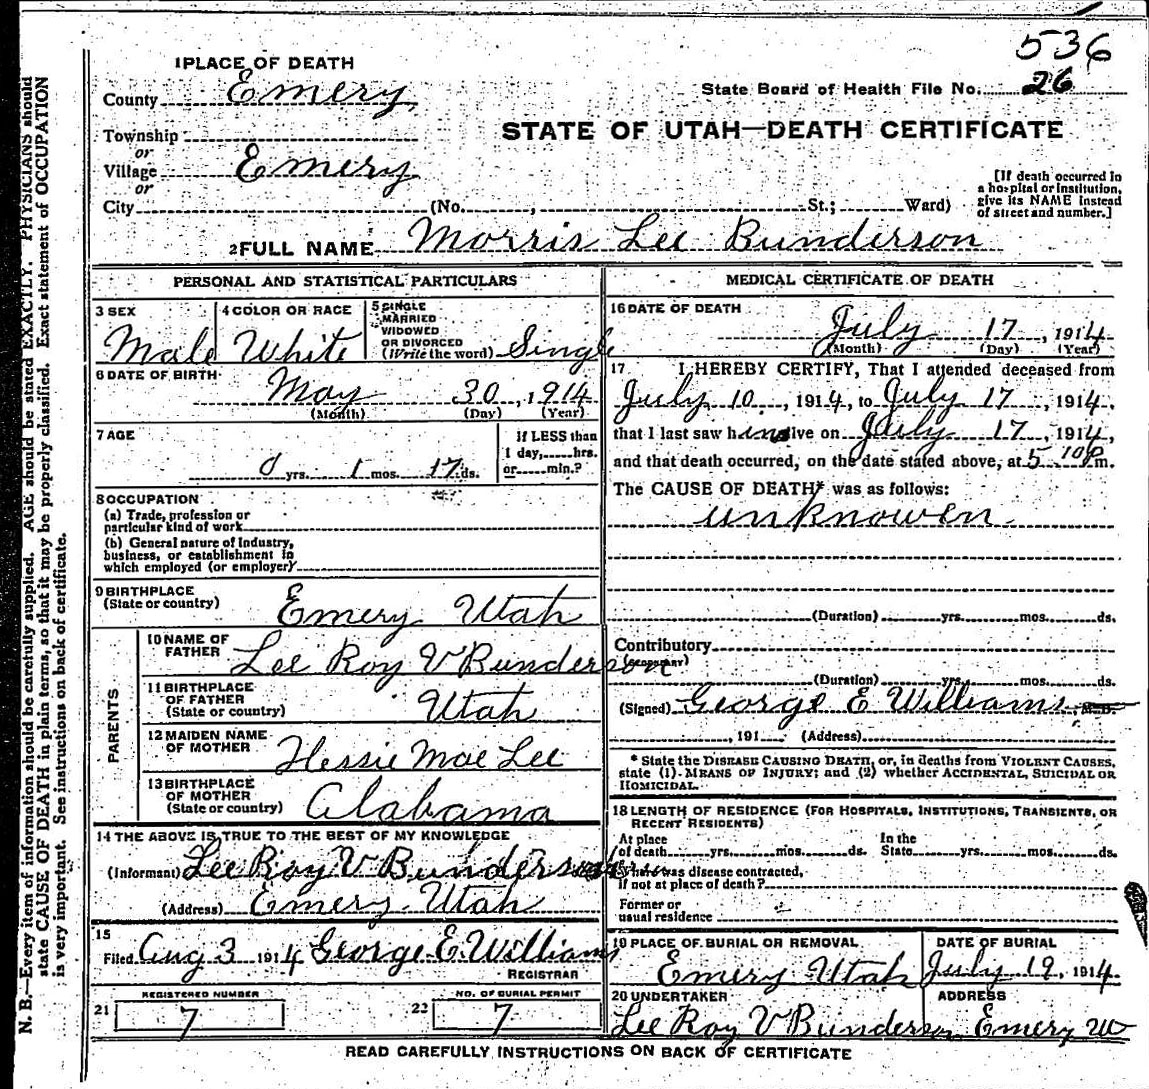 536
State Board of Health File No. 26
1 PLACE OF DEATH
County Emery
STATE OF UTAH—DEATH CERTIFICATE
Township
or
Village Emery
or
City (No. , St.; Ward)
[If death occurred in
a hospital or institution,
give its NAME instead
of street and number.]
2 FULL NAME Morris Lee Bunderson
PERSONAL AND STATISTICAL PARTICULARS
3 SEX
Male
4 COLOR OR RACE
White
5 SINGLE
MARRIED
WIDOWED
OR DIVORCED
(Write the word) Single
6 DATE OF BIRTH
May 30, 1914
(Month) (Day) (Year)
7 AGE
0 yrs. 1 mos. 17 ds.
If LESS than
1 day, hrs.
or min.?
8 OCCUPATION
(a) Trade, profession or
particular kind of work
(b) General nature of Industry,
business, or establishment in
which employed (or employer)
9 BIRTHPLACE
(State or country) Emery Utah
PARENTS
10 NAME OF
FATHER Lee Roy V Bunderson
11 BIRTHPLACE
OF FATHER
(State or country) Utah
12 MAIDEN NAME
OF MOTHER Hessie Mae Lee
13 BIRTHPLACE
OF MOTHER
(State or country) Alabama
14 THE ABOVE IS TRUE TO THE BEST OF MY KNOWLEDGE
(Informant) Lee Roy V Bunderson
(Address) Emery Utah
15
Filed Aug 3 1914 George E. Williams
REGISTRAR
21 REGISTERED NUMBER
7
22 NO. OF BURIAL PERMIT
7
MEDICAL CERTIFICATE OF DEATH
16 DATE OF DEATH
July 17, 1914
(Month) (Day) (Year)
17 I HEREBY CERTIFY, That I attended deceased from
July 10, 1914, to July 17, 1914,
that I last saw him alive on July 17, 1914,
and that death occurred, on the date stated above, at 5 10 P m.
The CAUSE OF DEATH* was as follows:
unknowen
(Duration) yrs. mos. ds.
Contributory
(Secondary)
(Duration) yrs. mos. ds.
(Signed) George E Williams, M.D.
, 191 (Address)
* State the DISEASE CAUSING DEATH, or, in deaths from VIOLENT CAUSES,
state (1) MEANS OF INJURY; and (2) whether ACCIDENTAL, SUICIDAL OR
HOMICIDAL.
18 LENGTH OF RESIDENCE (FOR HOSPITALS, INSTITUTIONS, TRANSIENTS, OR
RECENT RESIDENTS)
At place In the
of death yrs. mos. ds. State yrs. mos. ds.
Where was disease contracted,
if not at place of death?
Former or
usual residence
19 PLACE OF BURIAL OR REMOVAL
Emery Utah
DATE OF BURIAL
July 19, 1914
20 UNDERTAKER
Lee Roy V Bunderson
ADDRESS
Emery U
READ CAREFULLY INSTRUCTIONS ON BACK OF CERTIFICATE
N. B.—Every item of information should be carefully supplied. AGE should be stated EXACTLY. PHYSICIANS should
state CAUSE OF DEATH in plain terms, so that it may be properly classified. Exact statement of OCCUPATION
is very important. See instructions on back of certificate.